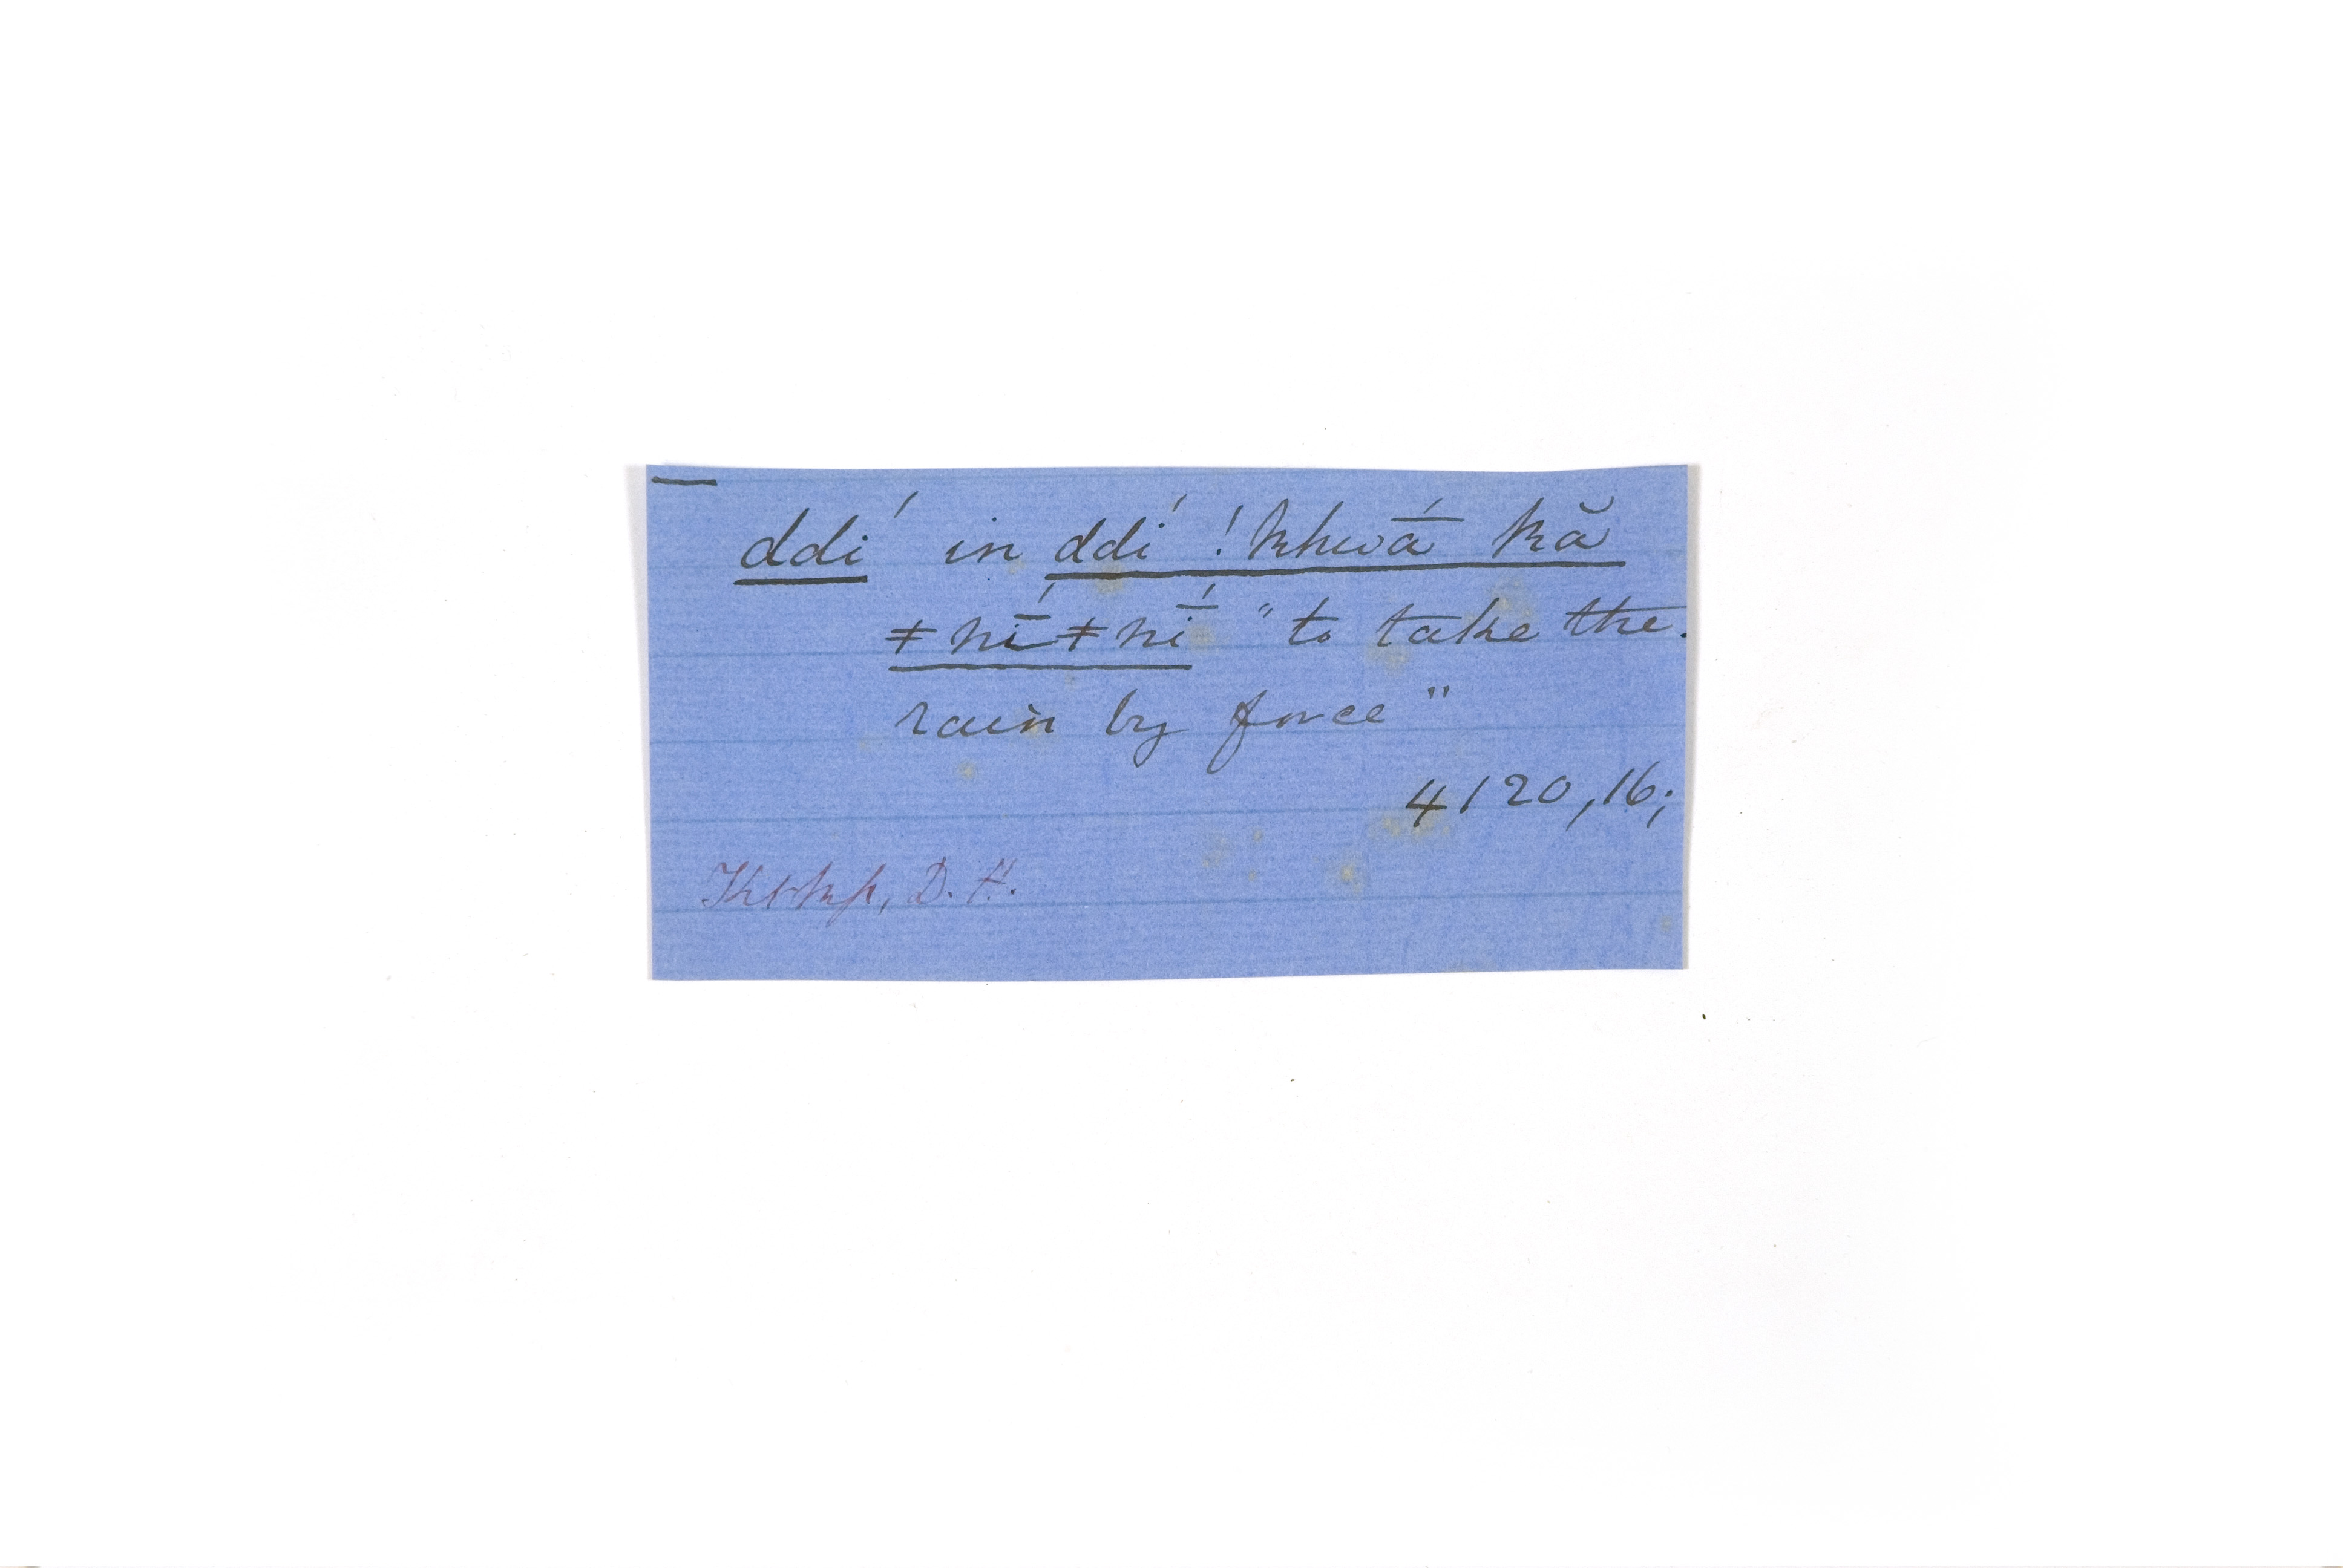 ddí in ddí !khwā́ kă
ǂnī́ǂnī́ "to take the
rain by force"
4120,16;
D. H.